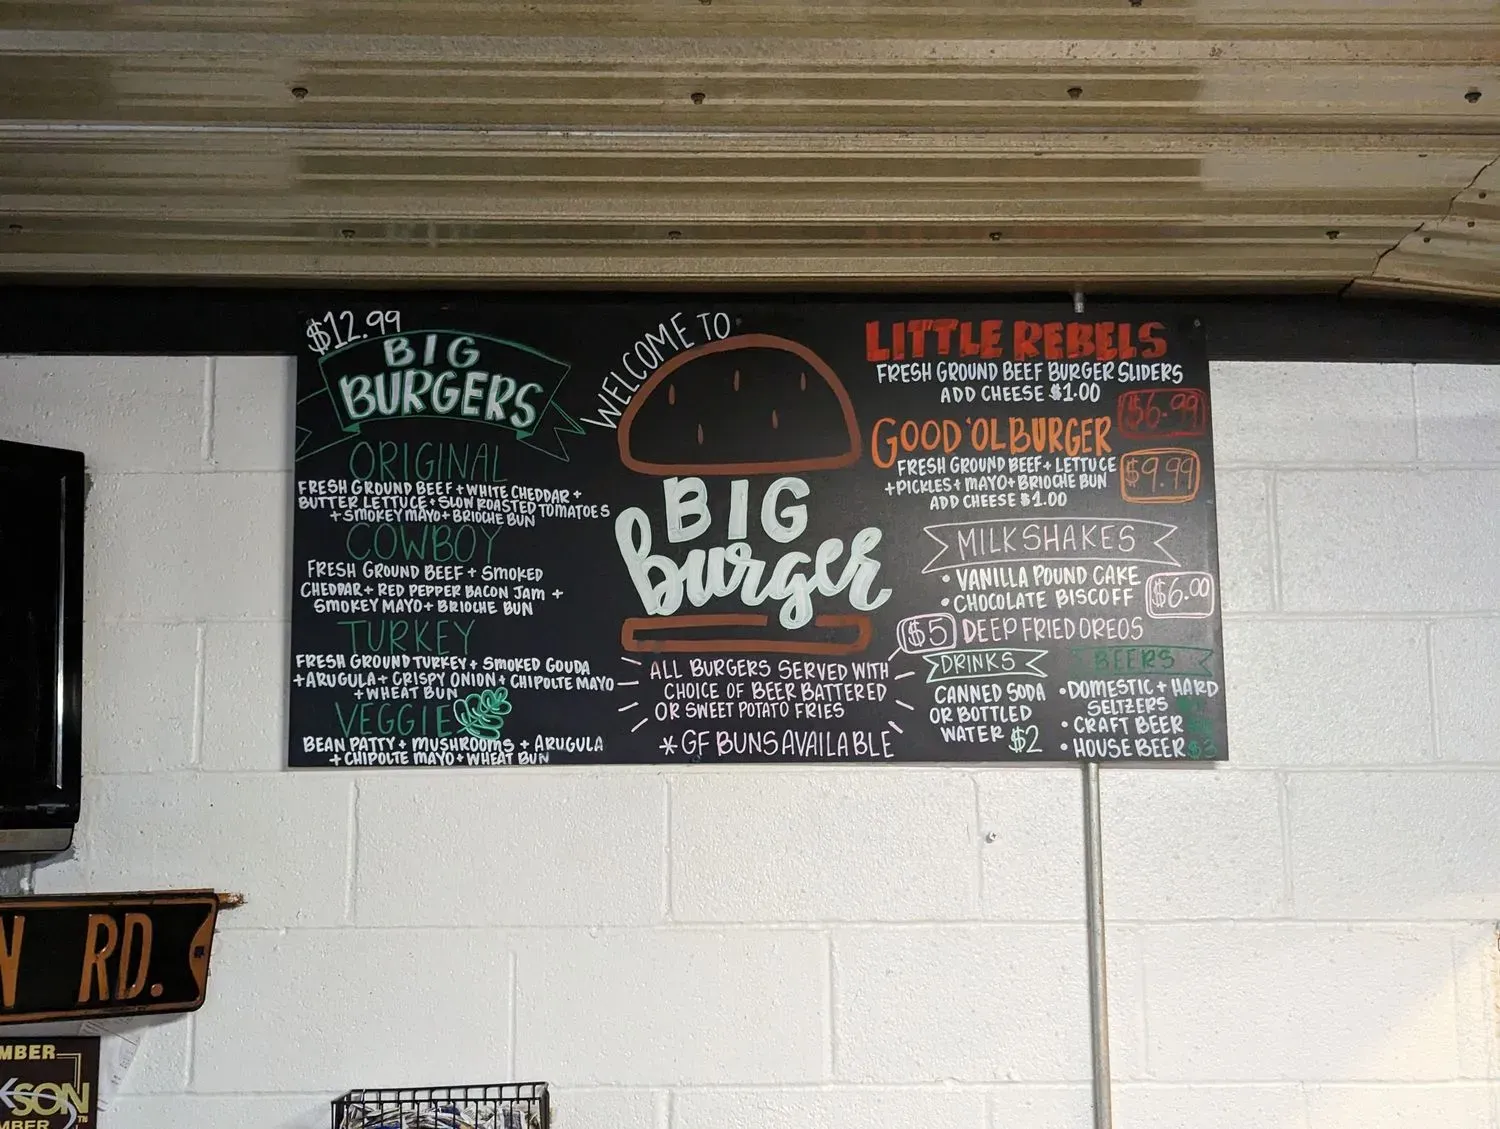 $12.99
BIG
BURGERS
ORIGINAL
FRESH GROUND BEEF + WHITE CHEDDAR +
BUTTER LETTUCE + SLOW ROASTED TOMATOES
+ SMOKEY MAYO + BRIOCHE BUN
COWBOY
FRESH GROUND BEEF + SMOKED
CHEDDAR + RED PEPPER BACON JAM +
SMOKEY MAYO + BRIOCHE BUN
TURKEY
FRESH GROUND TURKEY + SMOKED GOUDA
+ ARUGULA + CRISPY ONION + CHIPOLTE MAYO
+ WHEAT BUN
VEGGIE
BEAN PATTY + MUSHROOMS + ARUGULA
+ CHIPOLTE MAYO + WHEAT BUN
WELCOME TO
BIG
burger
ALL BURGERS SERVED WITH
CHOICE OF BEER BATTERED
OR SWEET POTATO FRIES
*GF BUNS AVAILABLE
LITTLE REBELS
FRESH GROUND BEEF BURGER SLIDERS
ADD CHEESE $1.00
$6.99
GOOD 'OL BURGER
FRESH GROUND BEEF + LETTUCE
+ PICKLES + MAYO + BRIOCHE BUN
ADD CHEESE $1.00
$9.99
MILKSHAKES
• VANILLA POUND CAKE
• CHOCOLATE BISCOFF
$6.00
$5 DEEP FRIED OREOS
DRINKS
CANNED SODA
OR BOTTLED
WATER $2
BEERS
• DOMESTIC + HARD
SELTZERS
• CRAFT BEER
• HOUSE BEER $3
N RD.
MBER
KSON
MBER